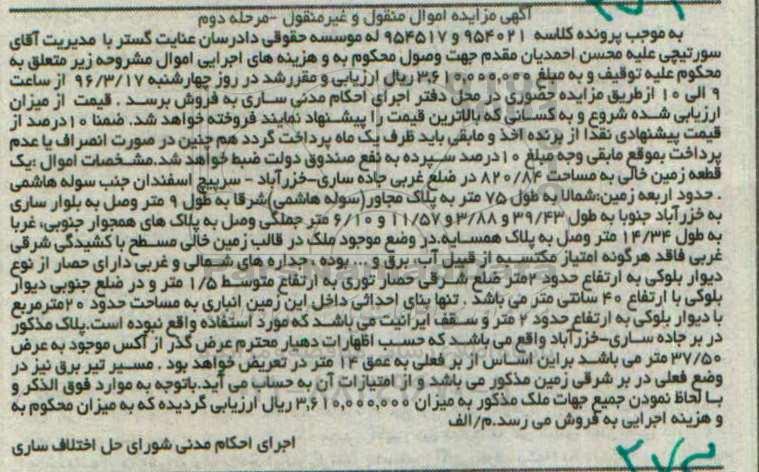 آگهی مزایده اموال منقول و غیرمنقول -مرحله دوم
به موجب پرونده کلاسه ۹۵۴۰۲۱ و ۹۵۴۵۱۷ له موسسه حقوقی دادرسان عنایت گستر با مدیریت آقای
سورتیچی علیه محسن احمدیان مقدم جهت وصول محکوم به و هزینه های اجرایی اموال مشروحه زیر متعلق به
محکوم علیه توقیف و به مبلغ ۳,۶۱۰,۰۰۰,۰۰۰ ریال ارزیابی و مقررشد در روز چهارشنبه ۹۶/۳/۱۷ از ساعت
۹ الی ۱۰ ازطریق مزایده حضوری در محل دفتر اجرای احکام مدنی ساری به فروش برسد . قیمت از میزان
ارزیابی شده شروع و به کسانی که بالاترین قیمت را پیشنهاد نمایند فروخته خواهد شد. ضمنا ۱۰درصد از
قیمت پیشنهادی نقدا از برنده اخذ و مابقی باید ظرف یک ماه پرداخت گردد هم چنین در صورت انصراف یا عدم
پرداخت بموقع مابقی وجه مبلغ ۱۰درصد سپرده به نفع صندوق دولت ضبط خواهد شد.مشخصات اموال :یک
قطعه زمین خالی به مساحت ۸۲۰/۸۴ در ضلع غربی جاده ساری-خزرآباد - سرپیچ اسفندان جنب سوله هاشمی
. حدود اربعه زمین:شمالا به طول ۷۵ متر به پلاک مجاور(سوله هاشمی)شرقا به طول ۹ متر وصل به بلوار ساری
به خزرآباد جنوبا به طول ۳۹/۴۳ و ۳/۸۸ و ۱۱/۵۷ و ۶/۱۰ متر جملگی وصل به پلاک های همجوار جنوبی، غربا
به طول ۱۴/۳۴ متر وصل به پلاک همسایه.در وضع موجود ملک در قالب زمین خالی مسطح با کشیدگی شرقی
غربی فاقد هرگونه امتیاز مکتسبه از قبیل آب، برق و ... بوده ،جداره های شمالی و غربی دارای حصار از نوع
دیوار بلوکی به ارتفاع حدود ۲متر ضلع شرقی حصار توری به ارتفاع متوسط ۱/۵ متر و در ضلع جنوبی دیوار
بلوکی با ارتفاع ۴۰ سانتی متر می باشد . تنها بنای احداثی داخل این زمین انباری به مساحت حدود ۲۰مترمربع
با دیوار بلوکی به ارتفاع حدود ۲ متر و سقف ایرانیت می باشد که مورد استفاده واقع نبوده است.پلاک مذکور
در بر جاده ساری-خزرآباد واقع می باشد که حسب اظهارات دهیار محترم عرض گذر از آکس موجود به عرض
۳۷/۵۰ متر می باشد بر این اساس از بر فعلی به عمق ۱۴ متر در تعریض خواهد بود . مسیر تیر برق نیز در
وضع فعلی در بر شرقی زمین مذکور می باشد و از امتیازات آن به حساب می آید.باتوجه به موارد فوق الذکر و
با لحاظ نمودن جمیع جهات ملک مذکور به میزان ۳,۶۱۰,۰۰۰,۰۰۰ ریال ارزیابی گردیده که به میزان محکوم به
و هزینه اجرایی به فروش می رسد.م/الف
اجرای احکام مدنی شورای حل اختلاف ساری